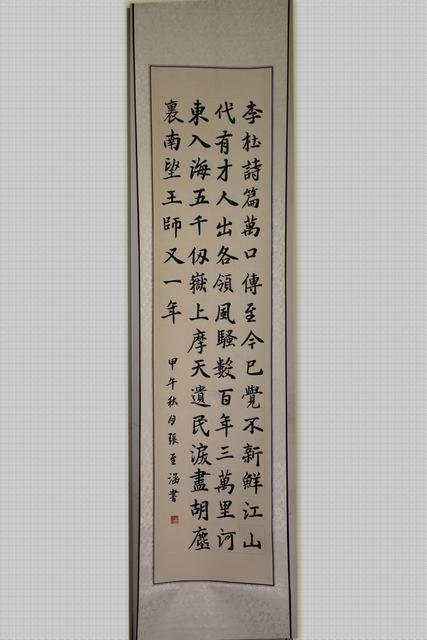 李杜詩篇萬口傳至今已覺不新鮮江山
代有才人出各領風騷數百年三萬里河
東入海五千仞嶽上摩天遺民淚盡胡塵
裏南望王師又一年
甲午秋月張至涵書